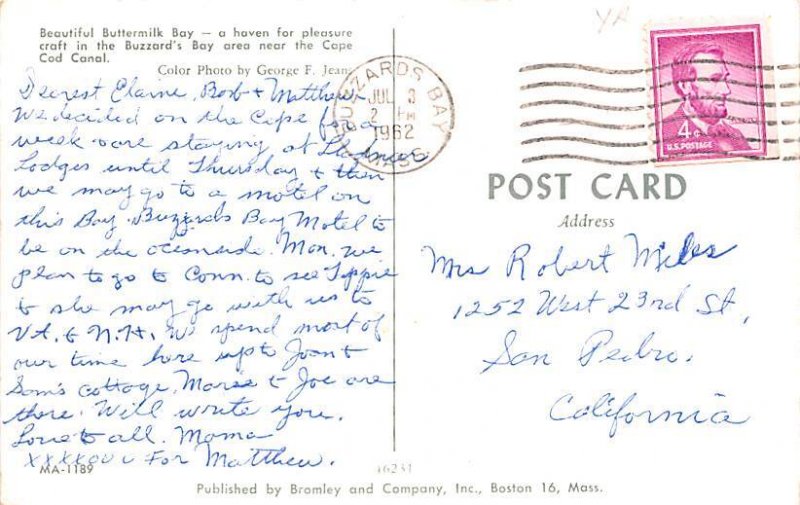 Beautiful Buttermilk Bay — a haven for pleasure
craft in the Buzzard's Bay area near the Cape
Cod Canal.
Color Photo by George F. Jean
Dearest Elaine, Bob & Matthew
We decided on the Cape for a
week & are staying at
Lodges until Thursday & then
we may go to a motel on
this Bay. Buzzards Bay Motel to
be on the oceanside. Mon. we
plan to go to Conn. to see Tippie
& she may go with us to
VA. & N.H. We spend most of
our time here up to Joan &
Sam's cottage. Marse & Joe are
there. Will write you.
Love to all. Mama
XXXX for Matthew.
MA-1189
16231
Published by Bromley and Company, Inc., Boston 16, Mass.
BUZZARDS BAY
JUL 3
2 PM
1962
MASS.
4¢
U.S. POSTAGE
POST CARD
Address
Mrs Robert Miles
1252 West 23rd St,
San Pedro.
California